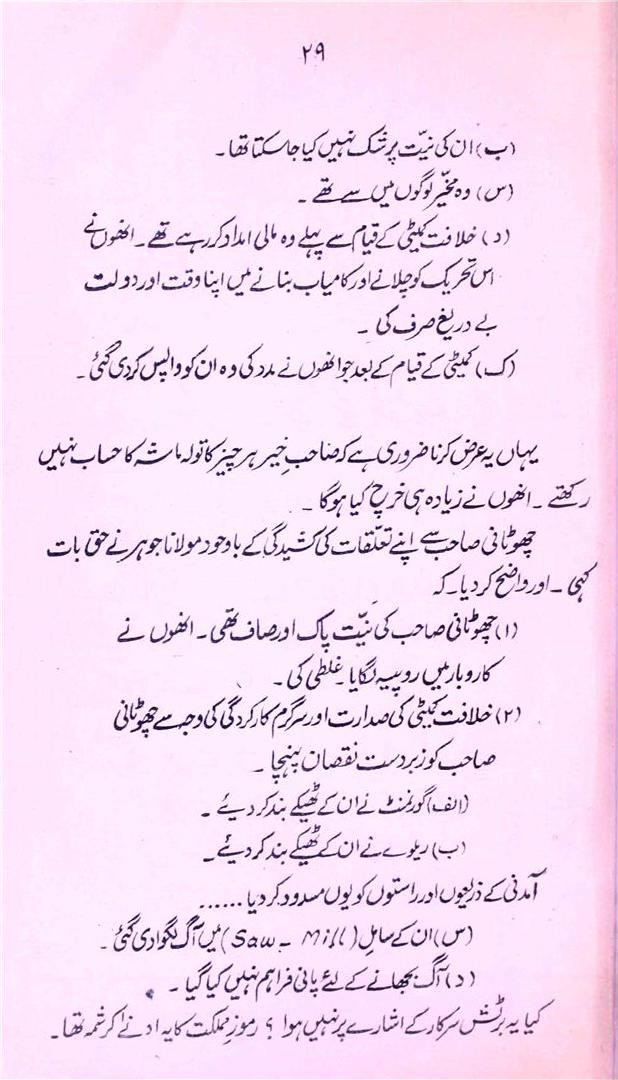 ۲۹
(ب) ان کی نیّت پر شک نہیں کیا جا سکتا تھا۔
(س) وہ مخیّر لوگوں میں سے تھے۔
(د) خلافت کمیٹی کے قیام سے پہلے وہ مالی امداد کر رہے تھے۔ انھوں نے
اس تحریک کو چلانے اور کامیاب بنانے میں اپنا وقت اور دولت
بے دریغ صرف کی۔
(ک) کمیٹی کے قیام کے بعد جو انھوں نے مدد کی وہ ان کو واپس کر دی گئی۔
یہاں یہ عرض کرنا ضروری ہے کہ صاحبِ خیر ہر چیز کا تولہ ماشہ کا حساب نہیں
رکھتے۔ انھوں نے زیادہ ہی خرچ کیا ہوگا۔
چھوٹانی صاحب سے اپنے تعلّقات کی کشیدگی کے باوجود مولانا جوہر نے حق بات
کہی۔ اور واضح کر دیا۔ کہ
(۱) چھوٹانی صاحب کی نیّت پاک اور صاف تھی۔ انھوں نے
کاروبار میں روپیہ لگایا۔ غلطی کی۔
(۲) خلافت کمیٹی کی صدارت اور سرگرم کارکردگی کی وجہ سے چھوٹانی
صاحب کو زبردست نقصان پہنچا۔
(الف) گورنمنٹ نے ان کے ٹھیکے بند کر دیئے۔
(ب) ریلوے نے ان کے ٹھیکے بند کر دیئے۔
آمدنی کے ذریعوں اور راستوں کو یوں مسدود کر دیا......
(س) ان کے سامل (Saw - Mill) میں آگ لگوا دی گئی۔
(د) آگ بجھانے کے لئے پانی فراہم نہیں کیا گیا۔
کیا یہ برٹش سرکار کے اشارے پر نہیں ہوا ؟ رموزِ مملکت کا یہ ادنےٰ کرشمہ تھا۔